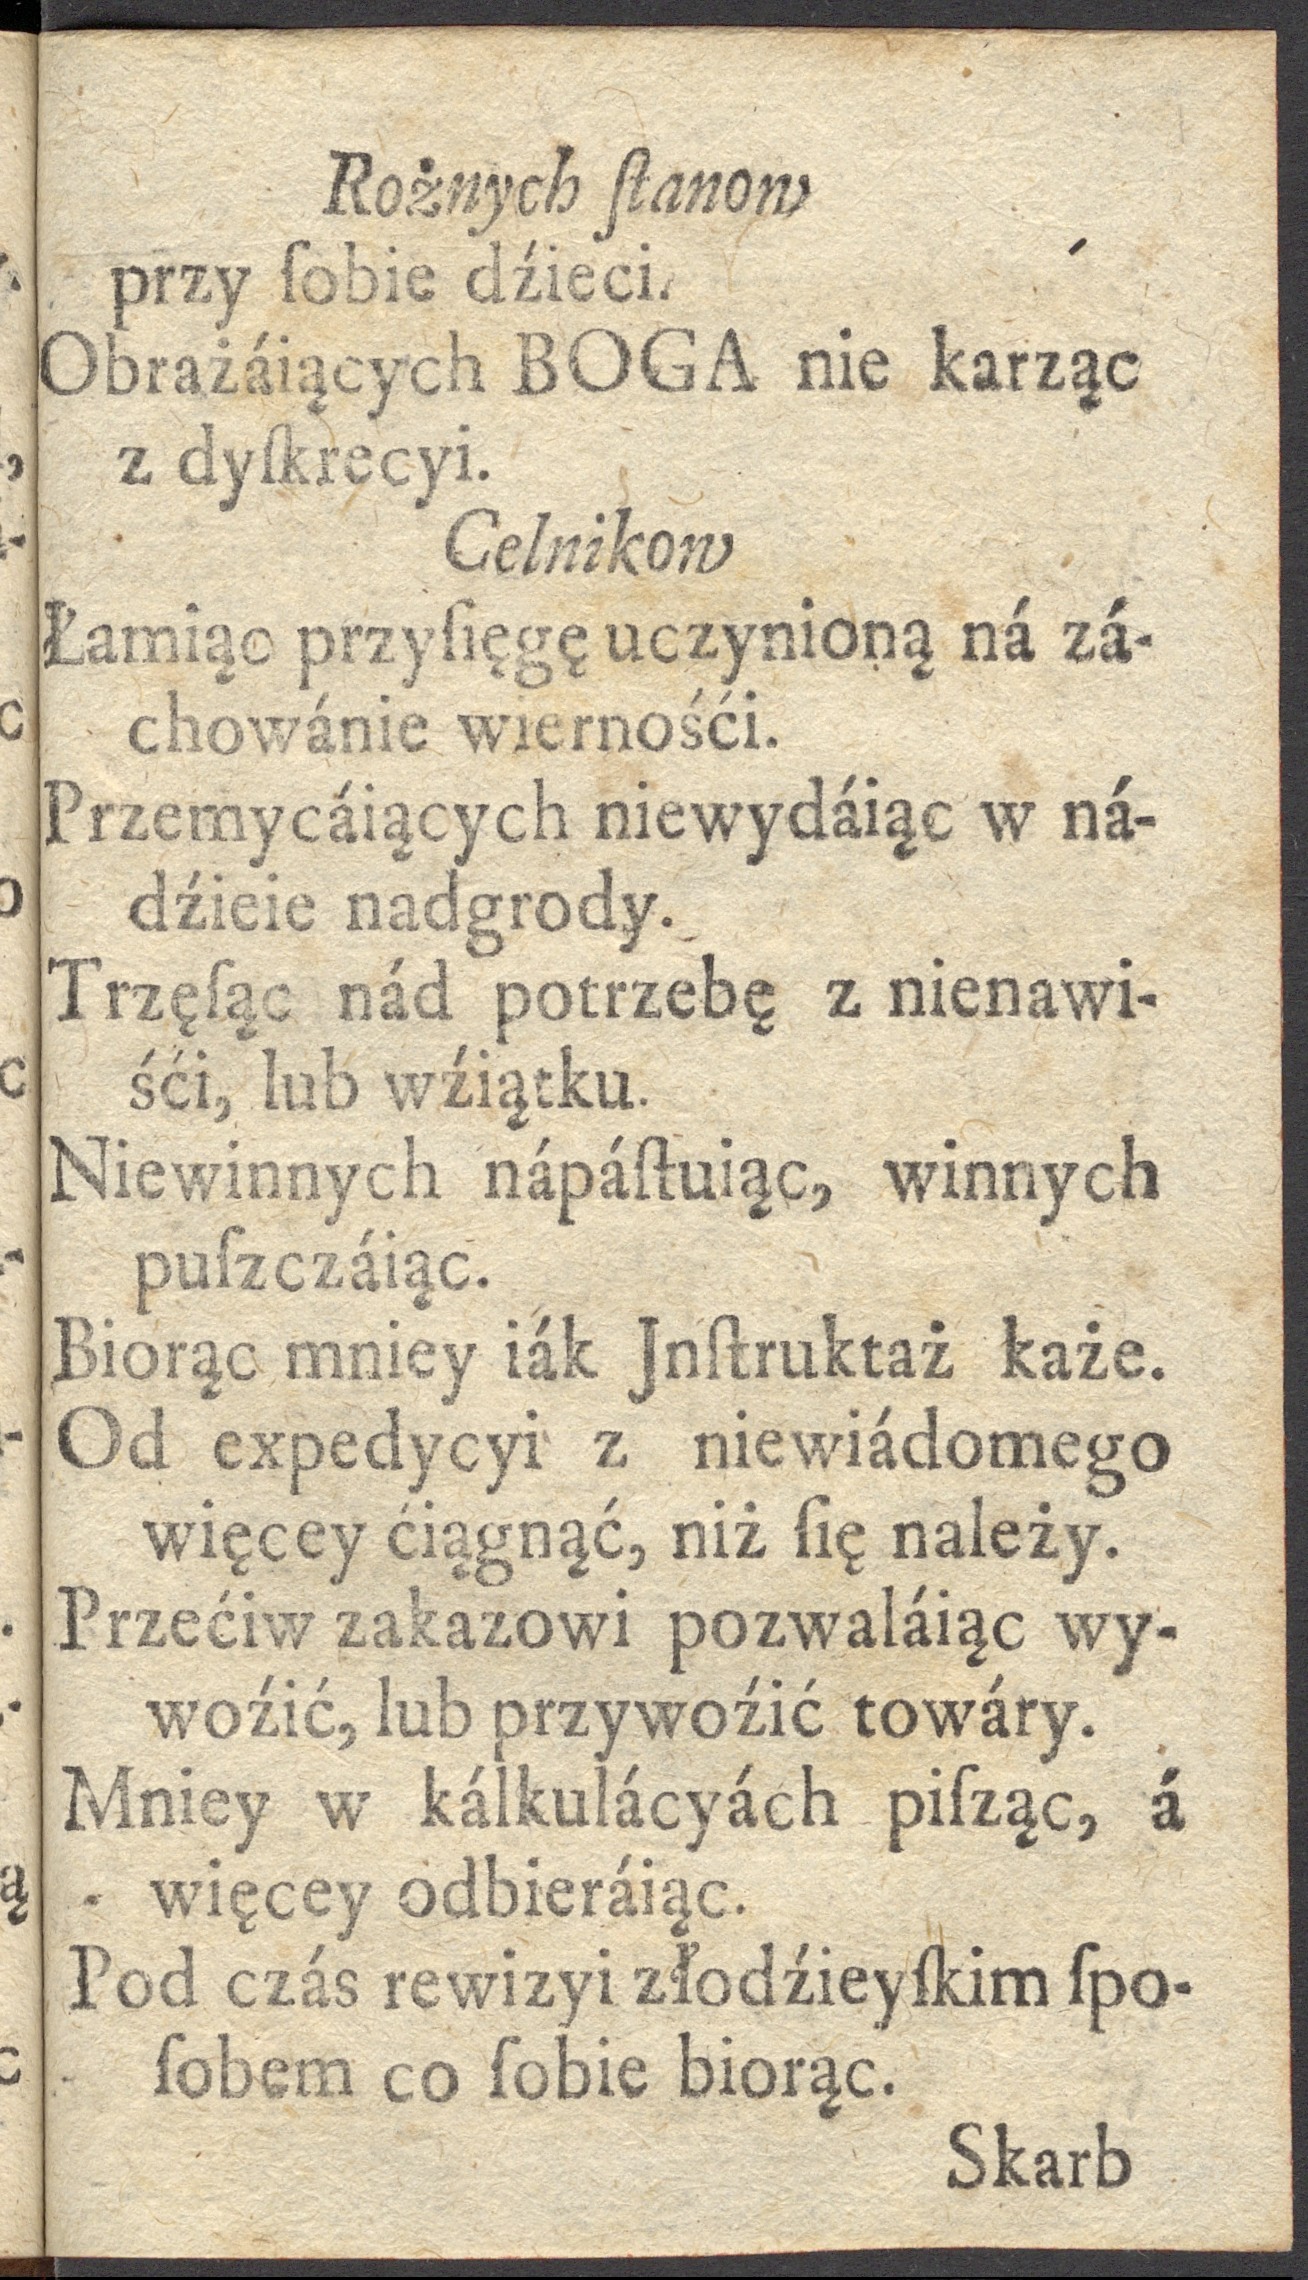 Rożnych ſtanow
przy ſobie dźieci.
Obrażáiących BOGA nie karząc
z dyſkrecyi.
Celnikow
Łamiąc przyſięgę uczynioną ná zá-
chowánie wiernośći.
Przemycáiących niewydáiąc w ná-
dźieie nadgrody.
Trzęſąc nád potrzebę z nienawi-
śći, lub wźiątku.
Niewinnych nápáſtuiąc, winnych
puſzczáiąc.
Biorąc mniey iák Jnſtruktaż każe.
Od expedycyi z niewiádomego
więcey ćiągnąć, niż ſię należy.
Przećiw zakazowi pozwaláiąc wy-
woźić, lub przywoźić towáry.
Mniey w kálkulácyách piſząc, á
więcey odbieráiąc.
Pod czás rewizyi złodźieyſkim ſpo-
ſobem co ſobie biorąc.
Skarb